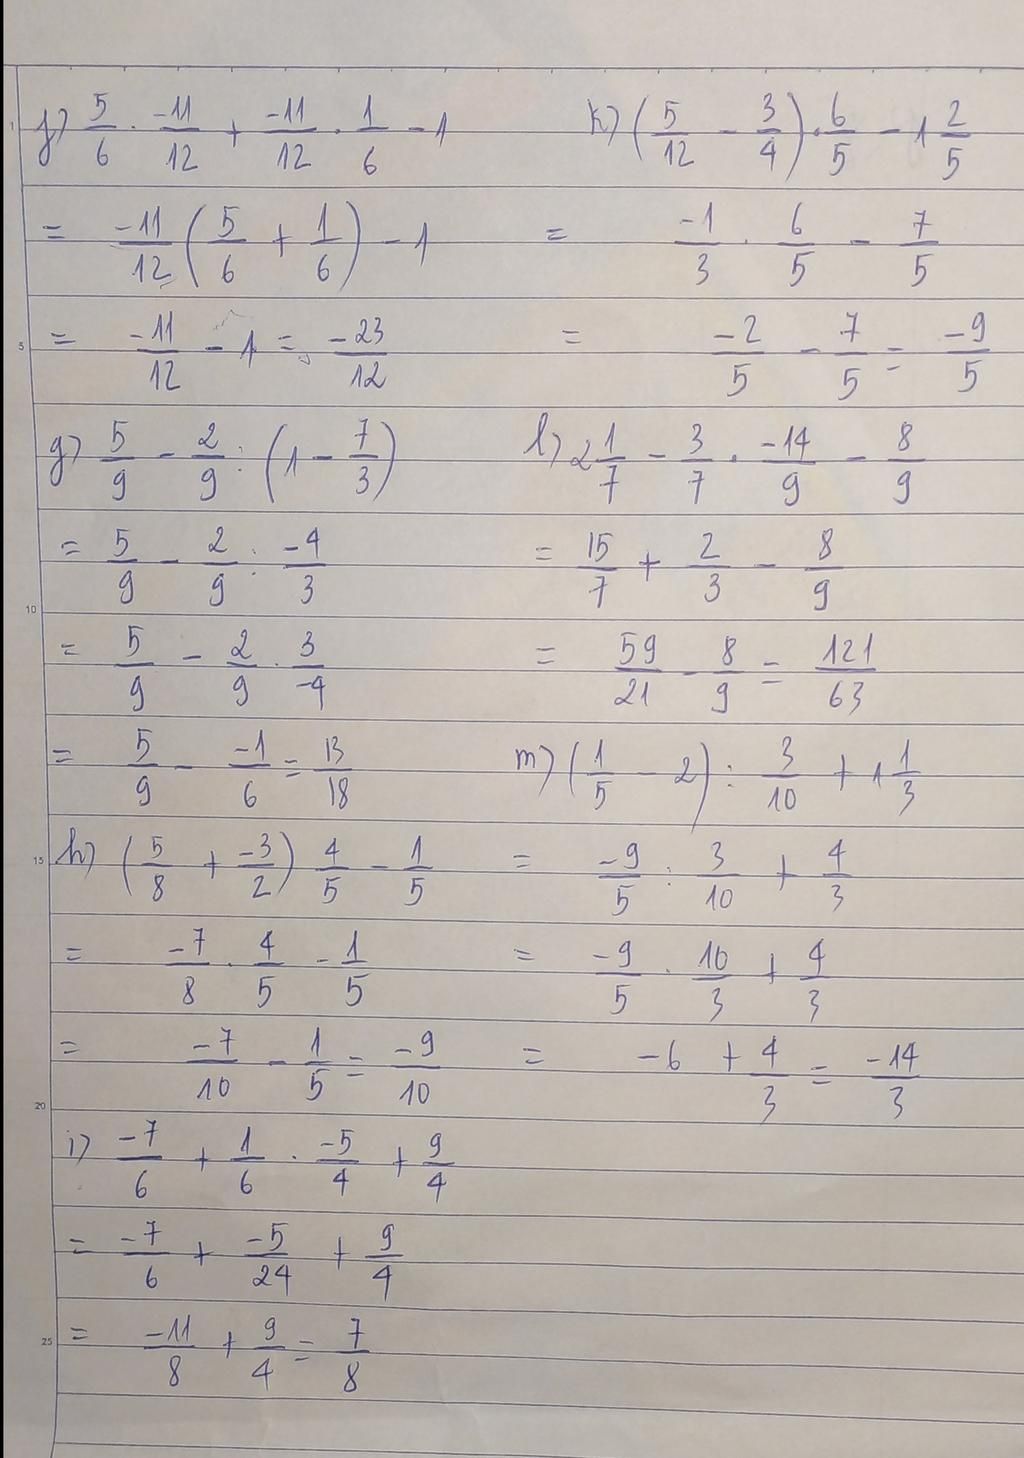 f) 5/6 . -11/12 + -11/12 . 1/6 - 1
= -11/12 (5/6 + 1/6) - 1
= -11/12 - 1 = -23/12
g) 5/9 - 2/9 : (1 - 7/3)
= 5/9 - 2/9 : -4/3
= 5/9 - 2/9 . 3/-4
= 5/9 - -1/6 = 13/18
h) (5/8 + -3/2) 4/5 - 1/5
= -7/8 . 4/5 - 1/5
= -7/10 - 1/5 = -9/10
i) -7/6 + 1/6 . -5/4 + 9/4
= -7/6 + -5/24 + 9/4
= -11/8 + 9/4 = 7/8
k) (5/12 - 3/4) . 6/5 - 1 2/5
= -1/3 . 6/5 - 7/5
= -2/5 - 7/5 = -9/5
l) 2 1/7 - 3/7 . -14/9 - 8/9
= 15/7 + 2/3 - 8/9
= 59/21 - 8/9 = 121/63
m) (1/5 - 2) : 3/10 + 1 1/3
= -9/5 : 3/10 + 4/3
= -9/5 . 10/3 + 4/3
= -6 + 4/3 = -14/3
1
5
10
15
20
25